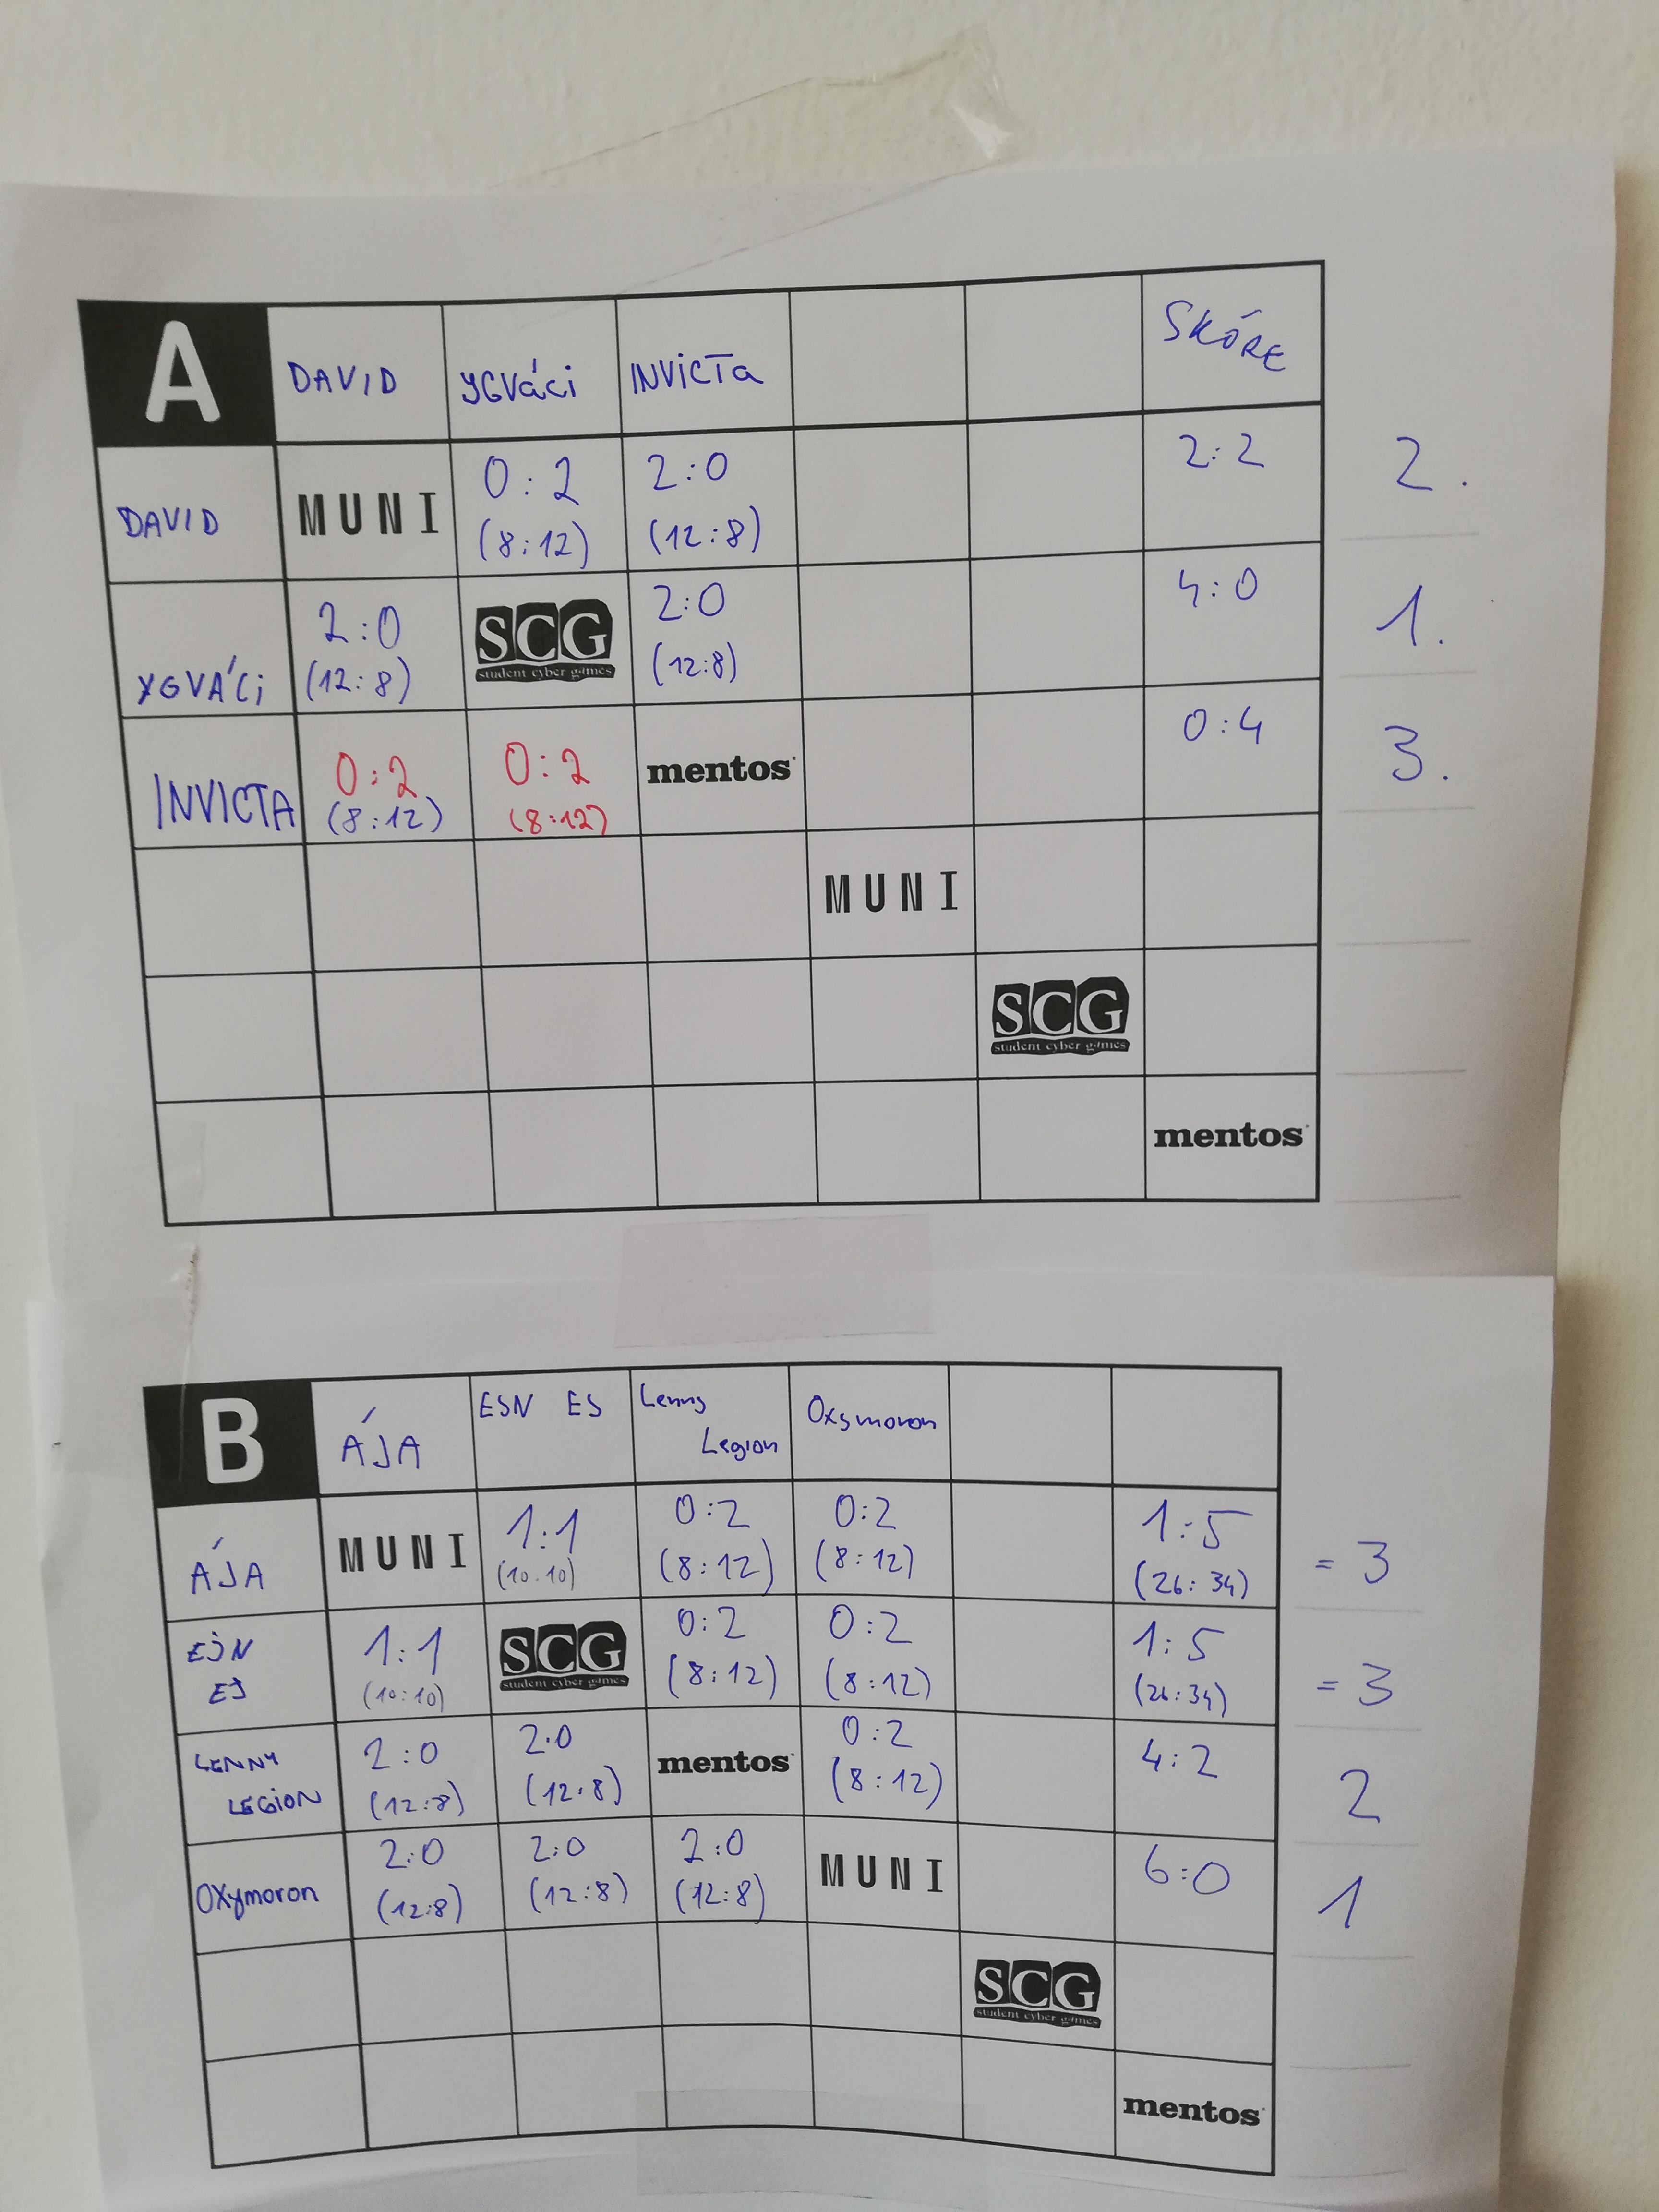 A DAVID YGVáCi INVICTa SKÓRE
DAVID MUNI 0:2 2:0 2:2 2.
(8:12) (12:8)
YGVÁCi 2:0 SCG 2:0 4:0 1.
(12:8) student cyber games (12:8)
INVICTA 0:2 0:2 mentos 0:4 3.
(8:12) (8:12)
MUNI
SCG
student cyber games
mentos
B ÁJA ESN ES Lenny Legion Oxymoron
ÁJA MUNI 1:1 0:2 0:2 1:5 = 3
(10:10) (8:12) (8:12) (26:34)
ESN ES 1:1 SCG 0:2 0:2 1:5 = 3
(10:10) student cyber games (8:12) (8:12) (26:34)
LENNY LEGION 2:0 2:0 mentos 0:2 4:2 2
(12:8) (12:8) (8:12)
OXymoron 2:0 2:0 2:0 MUNI 6:0 1
(12:8) (12:8) (12:8)
SCG
student cyber games
mentos